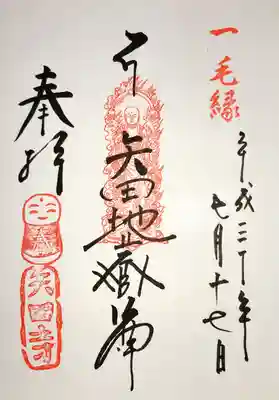 一毛縁
平成三十年
七月十七日
矢田地蔵尊
奉拝
矢田寺